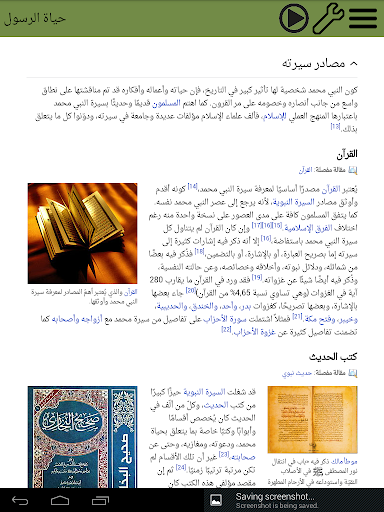 حياة الرسول
مصادر سيرته
كون النبي محمد شخصية لها تأثير كبير في التاريخ، فإن حياته وأعماله وأفكاره قد تم مناقشتها على نطاق
واسع من جانب أنصاره وخصومه على مر القرون. كما اهتم المسلمون قديمًا وحديثًا بسيرة النبي محمد
باعتبارها المنهج العملي الإسلام، فألف علماء الإسلام مؤلفات عديدة وجامعة في سيرته، ودوّنوا كل ما يتعلق
بذلك.[13]
القرآن
مقالة مفصلة: القرآن
يُعتبر القرآن مصدرًا أساسيًا لمعرفة سيرة النبي محمد،[14] كونه أقدم
وأوثق مصادر السيرة النبوية، لأنه يرجع إلى عصر النبي محمد نفسه.
كما يتفق المسلمون كافة على مدى العصور على نسخة واحدة منه رغم
اختلاف الفرق الإسلامية.[15][16][17] وإن كان القرآن لم يتناول كل
سيرة النبي محمد باستفاضة،[16] إلا أنه ذكر فيه إشارات كثيرة إلى
سيرته إما بصريح العبارة، أو بالإشارة، أو بالتضمين.[18] فذُكر فيه بعضًا
من شمائله، ودلائل نبوته، وأخلاقه وخصائصه، وعن حالته النفسية،
وذُكر فيه أيضًا شيئًا عن غزواته.[19] فقد ورد في القرآن ما يقارب 280
آية في الغزوات (وهي تساوي نسبة 4,65% من القرآن)[20] جاء بعضها
بالإشارة، وبعضها تصريحًا، كغزوات بدر، وأحد، والخندق، والحديبية،
وخيبر، وفتح مكة.[21] فمثلاً اشتملت سورة الأحزاب على تفاصيل من سيرة محمد مع أزواجه وأصحابه كما
تضمنت تفاصيل كثيرة عن غزوة الأحزاب.[22]
القرآن والذي يُعتبر أهمّ المصادر لمعرفة سيرة
النبي محمد وأوثقها
كتب الحديث
مقالة مفصلة: حديث نبوي
قد شغلت السيرة النبوية حيزًا كبيرًا
من كتب الحديث، وكلّ من ألّف في
وأبوابًا وكتبًا خاصة بما يتعلق بحياة
محمد، ودعوته، ومغازيه، وحتى عن
صحابته.[23] غير أن تلك الأقسام لم
تكن مرتبة ترتيبًا زمنيًا [24] إذ لم
يكن مقصد مؤلفي هذه الكتب كان
موطأمالك ذكر فيه «باب في انتقال
نور النبي محمد ﷺ في الأصلاب
النقيّة واستيداعه في الأرحام المطهرة
صحيح البخاري
Saving screenshot...
Screenshot is being saved.